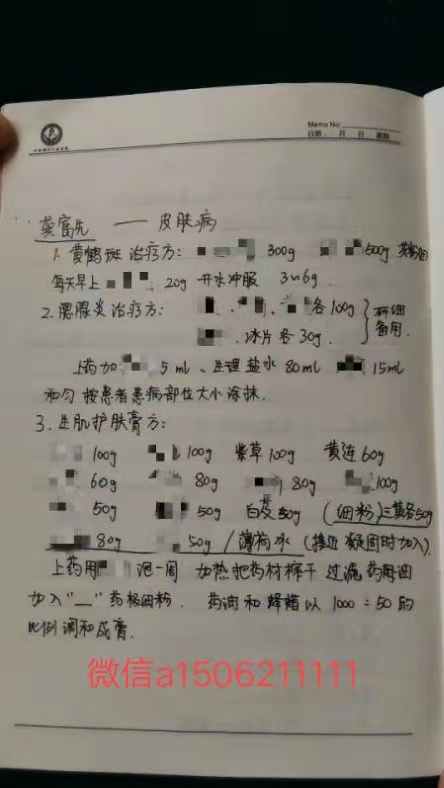 Memo No:
日期: 月 日 星期
龚富先 —— 皮肤病
1. 黄鹤斑治疗方: 300g 500g
每天早上 20g 开水冲服 3~6g.
2. 腮腺炎治疗方: 各100g 研细
冰片各30g. 备用.
上药加 5ml、生理盐水80ml 15ml
和匀 按患者患病部位大小涂抹.
3. 生肌护肤膏方:
100g 100g 紫草100g 黄连60g
60g 80g 80g 100g
50g 50g 白及50g (细粉) 三黄各50g
80g 50g / 薄荷冰 (接近凝固时加入).
上药用 泡一周 加热把药材榨干 过滤药油
加入"—"药极细粉. 药油和蜂蜡以1000=50的
比例调和成膏.
微信a1506211111